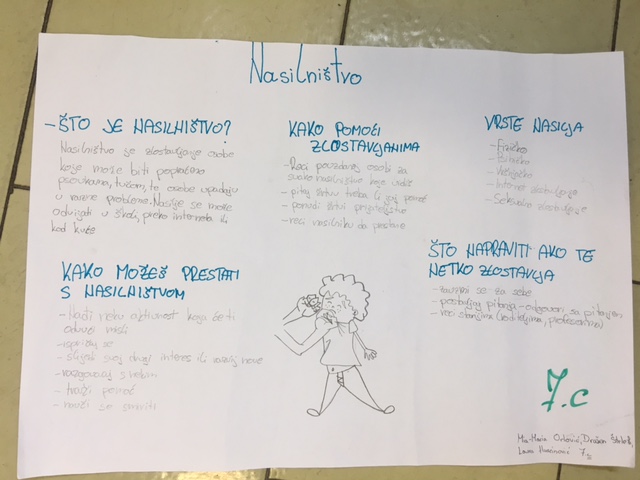 Nasilništvo
- ŠTO JE NASILNIŠTVO?
Nasilništvo je zlostavljanje osobe
koje može biti popraćeno
psovkama, tučom, te osobe upadaju
u razne probleme. Nasilje se može
odvijati u školi, preko interneta ili
kod kuće
KAKO POMOĆI
ZLOSTAVLJANIMA
- Reci pouzdanoj osobi za
svako nasilništvo koje vidiš
- pitaj žrtvu treba li joj pomoć
- ponudi žrtvi prijateljstvo
- reci nasilniku da prestane
VRSTE NASILJA
- Fizičko
- Psihičko
- Internet zlostavljanje
- Seksualno zlostavljanje
KAKO MOŽEŠ PRESTATI
S NASILNIŠTVOM
- Nađi neku aktivnost koja će ti
odvući misli
- ispričaj se
- slijedi svoj drugi interes ili razvij nove
- razgovaraj s nekim
- traži pomoć
- nauči se smiriti
ŠTO NAPRAVITI AKO TE
NETKO ZLOSTAVLJA
- zauzmi se za sebe
- postavljaj pitanja - odgovori sa pitanjem
- reci starijima (roditeljima, profesorima)
7.c
7.c